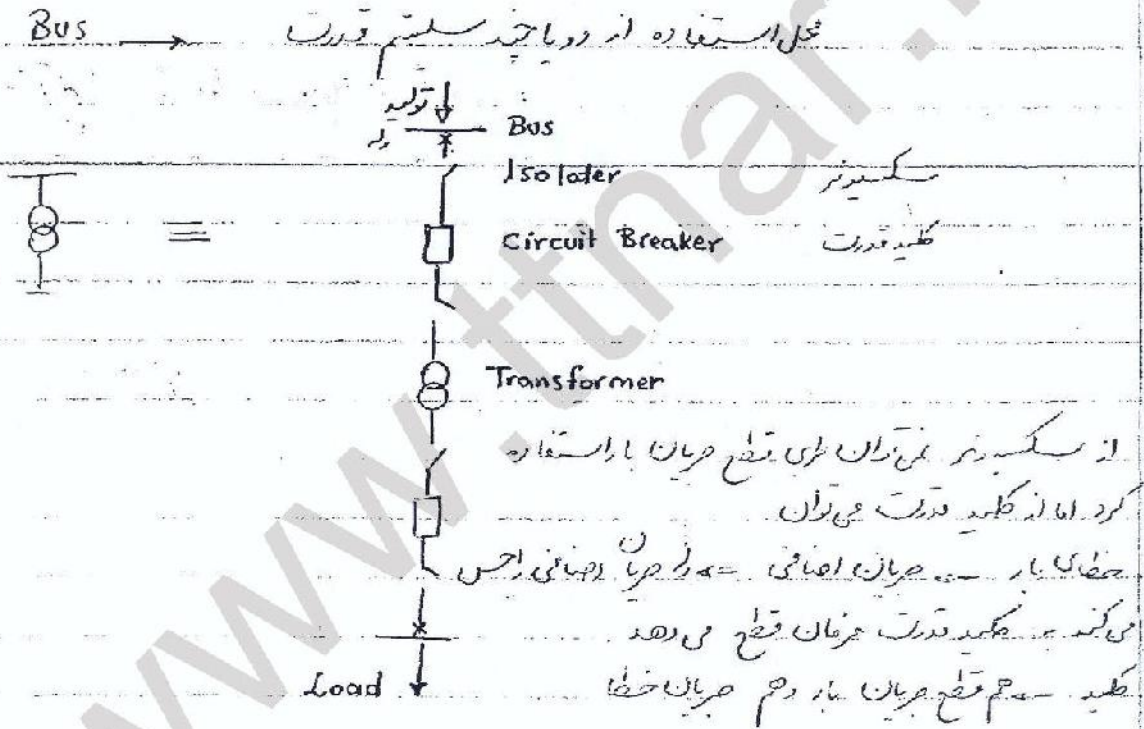 Bus → محل استفاده از دو یا چند سیستم قدرت
تولید
رله
Bus
Isolater سکسیونر
≡
Circuit Breaker کلید قدرت
Transformer
از سکسیونر نمی‌توان برای قطع جریان بار استفاده
کرد اما از کلید قدرت می‌توان
خطای بار → جریان اضافی → رله جریان اضافی را حس
می‌کند به کلید قدرت فرمان قطع می‌دهد
Load
کلید → هم قطع جریان بار و هم جریان خطا
www.ttnar.